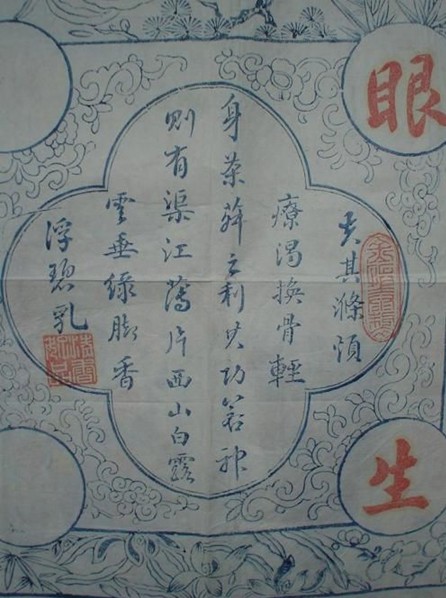 眼
生
夫其滌煩
療渴換骨輕
身茶荈之利其功若神
則有渠江薄片西山白露
雲垂綠腳香
浮碧乳